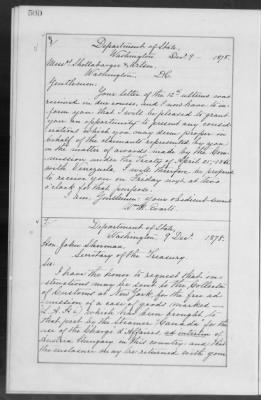 500
Department of State,
Washington Dec. 9 1878.
Messrs Shellabarger & Wilson,
Washington, D.C.
Gentlemen:
Your letter of the 12th ultimo was
received in due course, and I now have to in-
form you that I will be pleased to grant
you an opportunity to present any consid-
erations which you may deem proper on
behalf of the claimants represented by you
in the matter of awards made by the Com-
mission under the Treaty of April 25, 1866
with Venezuela. I will therefore be prepared
to receive you on Friday next at
o'clock for that purpose.
I am, Gentlemen: your obedient servant
Wm. M. Evarts
Department of State,
Washington, 9 Dec. 1878.
Hon John Sherman,
Secretary of the Treasury.
Sir:
I have the honor to request that in-
structions may be sent to the Collector
of Customs at New York for the free ad-
mission of a case of goods marked
which has been brought to
that port by the Steamer Canada for the
use of the Chargé d'Affaires ad interim of
Austria Hungary in this country and that
the enclosure may be returned with your